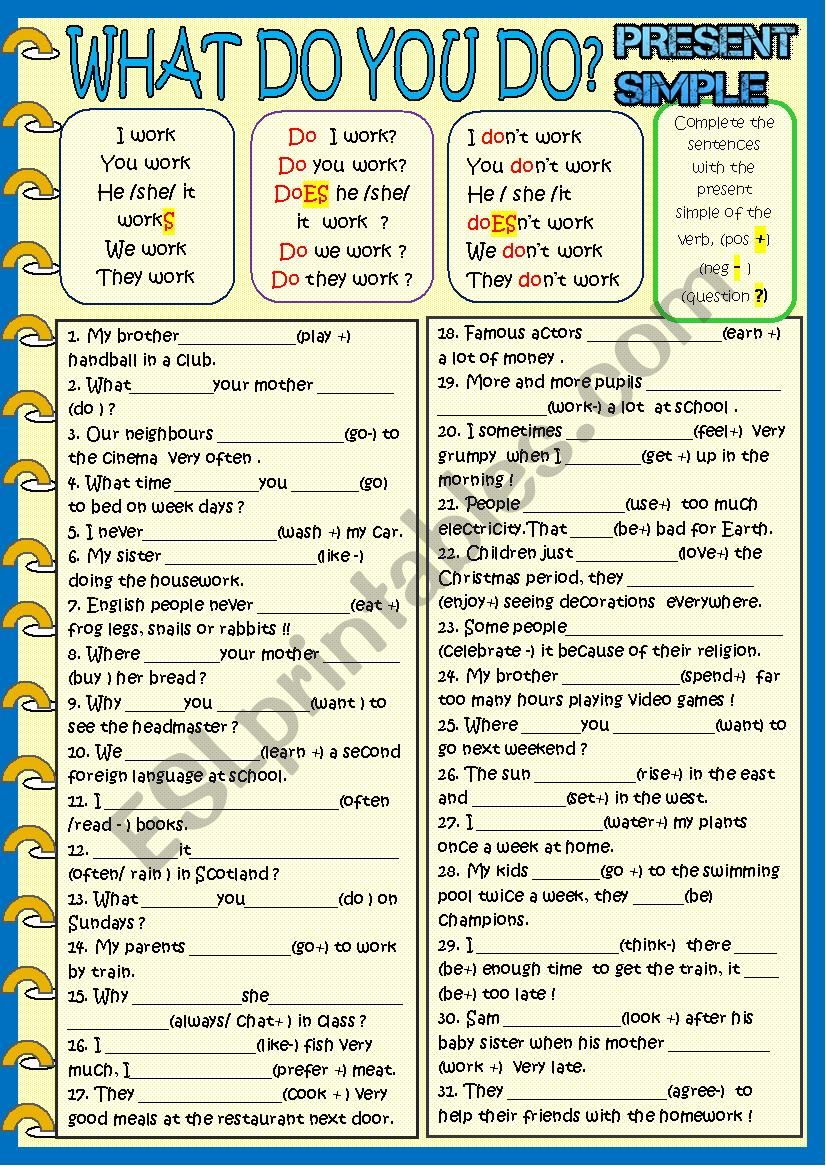 WHAT DO YOU DO?
PRESENT
SIMPLE
I work
You work
He /she/ it
workS
We work
They work
Do I work?
Do you work?
DoES he /she/
it work ?
Do we work ?
Do they work ?
I don't work
You don't work
He / she /it
doESn't work
We don't work
They don't work
Complete the
sentences
with the
present
simple of the
verb, (pos +)
(neg - )
(question ?)
1. My brother______________(play +)
handball in a club.
2. What__________your mother _________
(do ) ?
3. Our neighbours _______________(go-) to
the cinema Very often .
4. What time __________you ________(go)
to bed on week days ?
5. I never________________(wash +) my car.
6. My sister __________________(like -)
doing the housework.
7. English people never ___________(eat +)
frog legs, snails or rabbits !!
8. Where _________your mother _________
(buy ) her bread ?
9. Why _______you ___________(want ) to
see the headmaster ?
10. We ________________(learn +) a second
foreign language at school.
11. I ____________________________(often
/read - ) books.
12. __________it_________________________
(often/ rain ) in Scotland ?
13. What _________you___________(do ) on
Sundays ?
14. My parents ____________(go+) to work
by train.
15. Why _____________she________________
____________(always/ chat+ ) in class ?
16. I __________________(like-) fish Very
much, I_________________(prefer +) meat.
17. They _________________(cook + ) Very
good meals at the restaurant next door.
18. Famous actors ________________(earn +)
a lot of money .
19. More and more pupils ________________
_____________(work-) a lot at school .
20. I sometimes _______________(feel+) Very
grumpy when I _________(get +) up in the
morning !
21. People ____________(use+) too much
electricity.That _____(be+) bad for Earth.
22. Children just ____________(love+) the
Christmas period, they _______________
(enjoy+) seeing decorations everywhere.
23. Some people__________________________
(Celebrate -) it because of their religion.
24. My brother ______________(spend+) far
too many hours playing Video games !
25. Where _______you ____________(want) to
go next weekend ?
26. The sun ____________(rise+) in the east
and ___________(set+) in the west.
27. I _______________(water+) my plants
once a week at home.
28. My kids ________(go +) to the swimming
pool twice a week, they ______(be)
champions.
29. I _________________(think-) there _____
(be+) enough time to get the train, it ____
(be+) too late !
30. Sam ______________(look +) after his
baby sister when his mother ____________
(work +) Very late.
31. They ___________________(agree-) to
help their friends with the homework !
ESLprintables.com